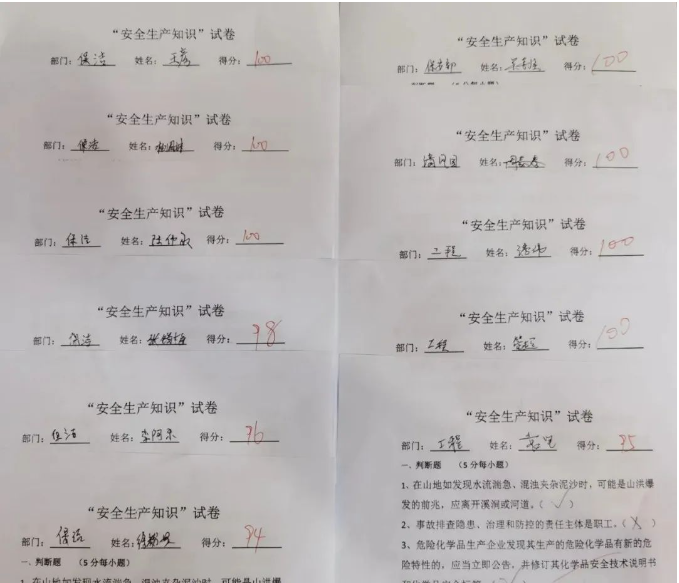 “安全生产知识”试卷
部门：保洁 姓名：王 得分：100
“安全生产知识”试卷
部门：保洁 姓名： 得分：100
“安全生产知识”试卷
部门：保洁 姓名：陆仲 得分：100
“安全生产知识”试卷
部门：保洁 姓名：张 得分：98
“安全生产知识”试卷
部门：保洁 姓名：李阿 得分：96
“安全生产知识”试卷
部门：保洁 姓名： 得分：94
一、判断题 （5分每小题）
1、在山地如发现水流湍急、混浊夹杂泥沙时，可能是山洪爆
“安全生产知识”试卷
部门： 姓名： 得分：100
一、判断题 （5分每小题）
“安全生产知识”试卷
部门： 姓名： 得分：100
“安全生产知识”试卷
部门：工程 姓名： 得分：100
“安全生产知识”试卷
部门：工程 姓名： 得分：100
“安全生产知识”试卷
部门：工程 姓名： 得分：95
一、判断题 （5分每小题）
1、在山地如发现水流湍急、混浊夹杂泥沙时，可能是山洪爆
发的前兆，应离开溪涧或河道。（ √ ）
2、事故排查隐患、治理和防控的责任主体是职工。（ X ）
3、危险化学品生产企业发现其生产的危险化学品有新的危
险特性的，应当立即公告，并修订其化学品安全技术说明书